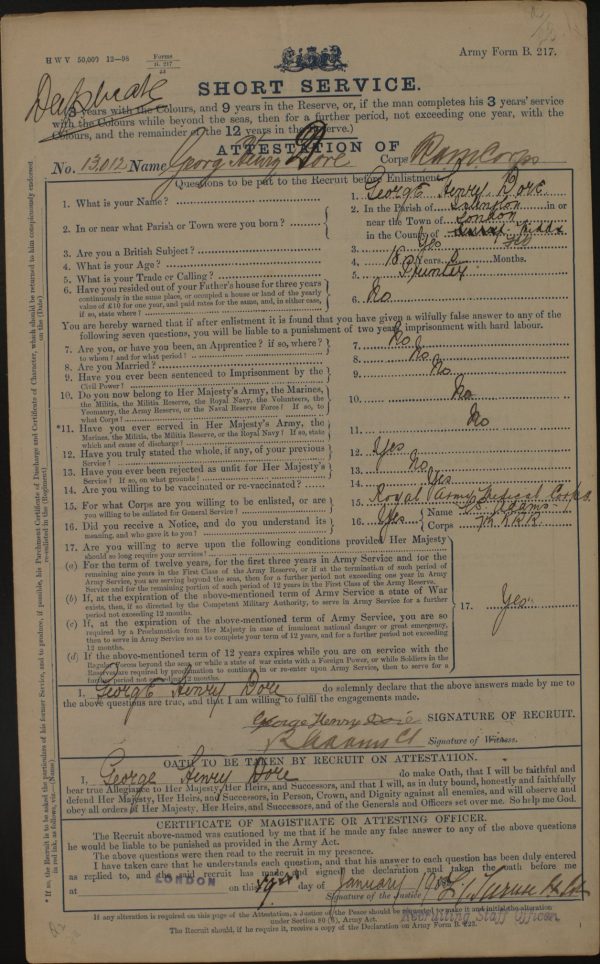 H W V 50,000 12—98 Forms B. 217/
Army Form B. 217.
Duplicate
SHORT SERVICE.
3 years with the Colours, and 9 years in the Reserve, or, if the man completes his 3 years' service
with the Colours while beyond the seas, then for a further period, not exceeding one year, with the
Colours, and the remainder of the 12 years in the Reserve.)
ATTESTATION OF
No. 13,012 Name Georg Henry Dore Corps R A M Corps
Questions to be put to the Recruit before Enlistment.
1. What is your Name? 1. George Henry Dore
2. In or near what Parish or Town were you born? 2. In the Parish of Islington in or
near the Town of London
in the County of
3. Are you a British Subject? 3. Yes
4. What is your Age? 4. 18 Years Months.
5. What is your Trade or Calling? 5. Printer
6. Have you resided out of your Father's house for three years
continuously in the same place, or occupied a house or land of the yearly
value of £10 for one year, and paid rates for the same, and, in either case,
if so, state where? 6. No
You are hereby warned that if after enlistment it is found that you have given a wilfully false answer to any of the
following seven questions, you will be liable to a punishment of two years imprisonment with hard labour.
7. Are you, or have you been, an Apprentice? if so, where?
to whom? and for what period? 7. No
8. Are you Married? 8. No
9. Have you ever been sentenced to Imprisonment by the
Civil Power? 9. No
10. Do you now belong to Her Majesty's Army, the Marines,
the Militia, the Militia Reserve, the Royal Navy, the Volunteers, the
Yeomanry, the Army Reserve, or the Naval Reserve Force? If so, to
what Corps? 10. No
*11. Have you ever served in Her Majesty's Army, the
Marines, the Militia, the Militia Reserve, or the Royal Navy? If so, state
which and cause of discharge? 11. No
12. Have you truly stated the whole, if any, of your previous
Service? 12. Yes
13. Have you ever been rejected as unfit for Her Majesty's
Service? If so, on what grounds? 13. No
14. Are you willing to be vaccinated or re-vaccinated? 14. Yes
15. For what Corps are you willing to be enlisted, or are
you willing to be enlisted for General Service? 15. Royal Army Medical Corps
16. Did you receive a Notice, and do you understand its
meaning, and who gave it to you? 16. Yes Name Adams
Corps
17. Are you willing to serve upon the following conditions provided Her Majesty
should so long require your services?
(a) For the term of twelve years, for the first three years in Army Service and for the
remaining nine years in the First Class of the Army Reserve, or if at the termination of such period of
Army Service, you are serving beyond the seas, then for a further period not exceeding one year in Army
Service and for the remaining portion of such period of 12 years in the First Class of the Army Reserve.
(b) If, at the expiration of the above-mentioned term of Army Service a state of War
exists, then, if so directed by the Competent Military Authority, to serve in Army Service for a further
period not exceeding 12 months.
(c) If, at the expiration of the above-mentioned term of Army Service, you are so
required by a Proclamation from Her Majesty in case of imminent national danger or great emergency,
then to serve in Army Service so as to complete your term of 12 years, and for a further period not exceeding
12 months.
(d) If the above-mentioned term of 12 years expires while you are on service with the
Regular Forces beyond the seas, or while a state of war exists with a Foreign Power, or while Soldiers in the
Reserve are required by proclamation to continue in or re-enter upon Army Service, then to serve for a
further period not exceeding 12 months.
17. Yes
I, George Henry Dore do solemnly declare that the above answers made by me to
the above questions are true, and that I am willing to fulfil the engagements made.
George Henry Dore SIGNATURE OF RECRUIT.
R Adams Signature of Witness.
OATH TO BE TAKEN BY RECRUIT ON ATTESTATION.
I, George Henry Dore do make Oath, that I will be faithful and
bear true Allegiance to Her Majesty, Her Heirs, and Successors, and that I will, as in duty bound, honestly and faithfully
defend Her Majesty, Her Heirs, and Successors, in Person, Crown, and Dignity against all enemies, and will observe and
obey all orders of Her Majesty, Her Heirs, and Successors, and of the Generals and Officers set over me. So help me God.
CERTIFICATE OF MAGISTRATE OR ATTESTING OFFICER.
The Recruit above-named was cautioned by me that if he made any false answer to any of the above questions
he would be liable to be punished as provided in the Army Act.
The above questions were then read to the recruit in my presence.
I have taken care that he understands each question, and that his answer to each question has been duly entered
as replied to, and the said recruit has made and signed the declaration and taken the oath before me
at LONDON on this 19th day of January
Signature of the Justice
Recruiting Staff Officer
If any alteration is required on this page of the Attestation, a Justice of the Peace should be requested to make it and initial the alteration
under Section 80 (6), Army Act.
The Recruit should, if he require it, receive a copy of the Declaration on Army Form B. 223.
* If so, the Recruit is to be asked the particulars of his former Service, and to produce, if possible, his Parchment Certificate of Discharge and Certificate of Character, which should be returned to him conspicuously endorsed
in red ink, as follows, viz.—(Name) re-enlisted in the (Regiment) on the (Date)